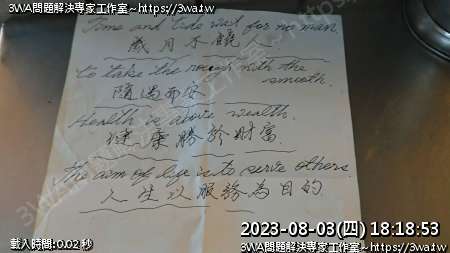 3WA問題解決專家工作室~https://3wa.tw
Time and tide wait for no man.
歲月不饒
to take the rough with the
smooth.
隨遇而安
Health is above wealth.
健康勝於財富.
the aim of life is to serve others.
人生以服務為目的
2023-08-03(四) 18:18:53
載入時間:0.02 秒
3WA問題解決專家工作室~https://3wa.tw